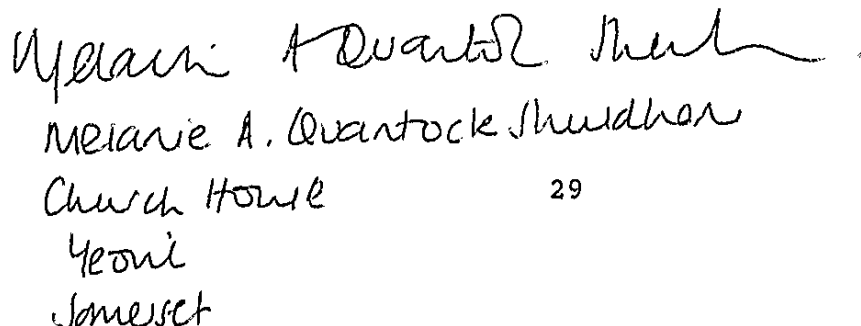 Melanie A Quantock
Melanie A. Quantock Shuldham
Church House
29
Yeovil
Somerset